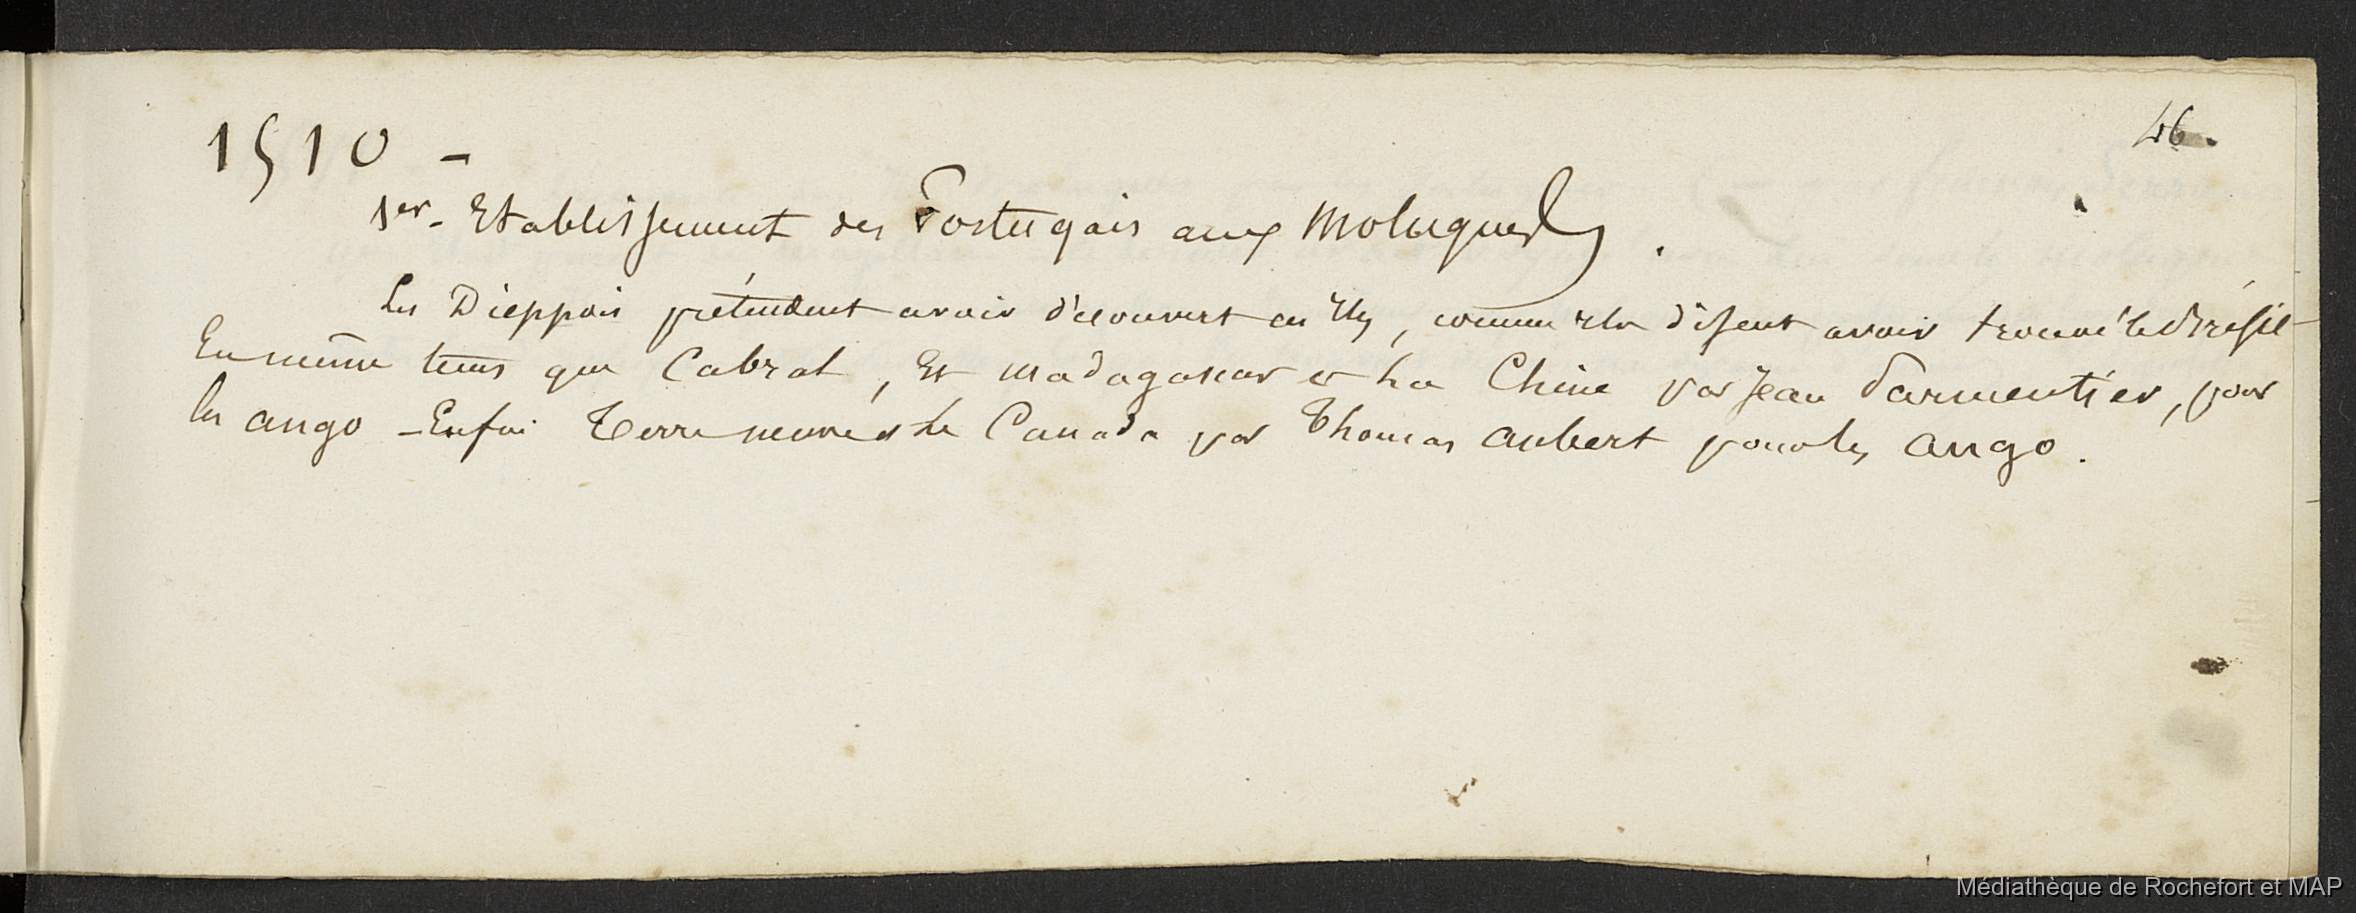 46.
1510 -
1er. Etablissement des Portugais aux Moluques.
Les Dieppois prétendent avoir découvert ces Iles, comme ils disent avoir trouvé le Brésil
En même tems que Cabral, Et Madagascar et La Chine par Jean Parmentier, pour
les ango - Enfin Terre neuve et Le Canada par Thomas aubert pour les ango.
Médiathèque de Rochefort et MAP